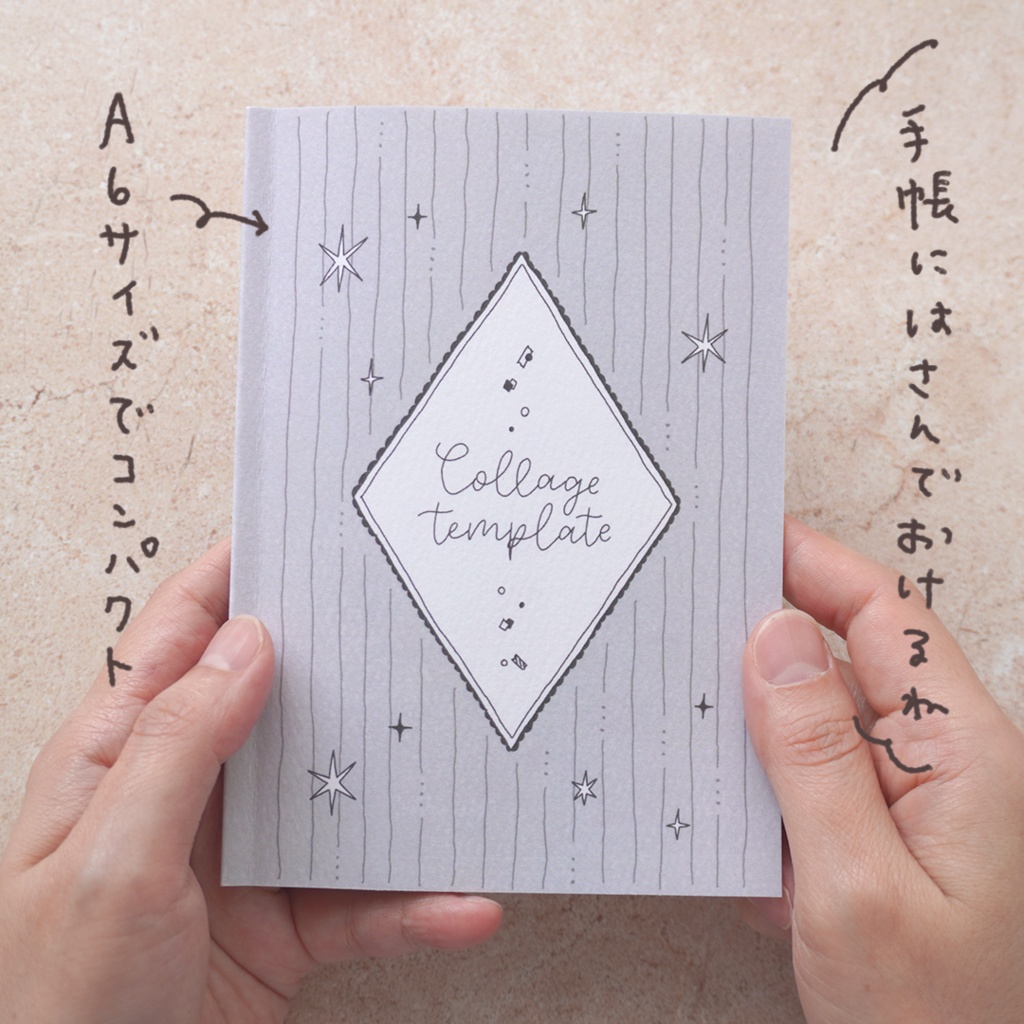 手帳にはさんでおけるね
A6サイズでコンパクト
Collage
template